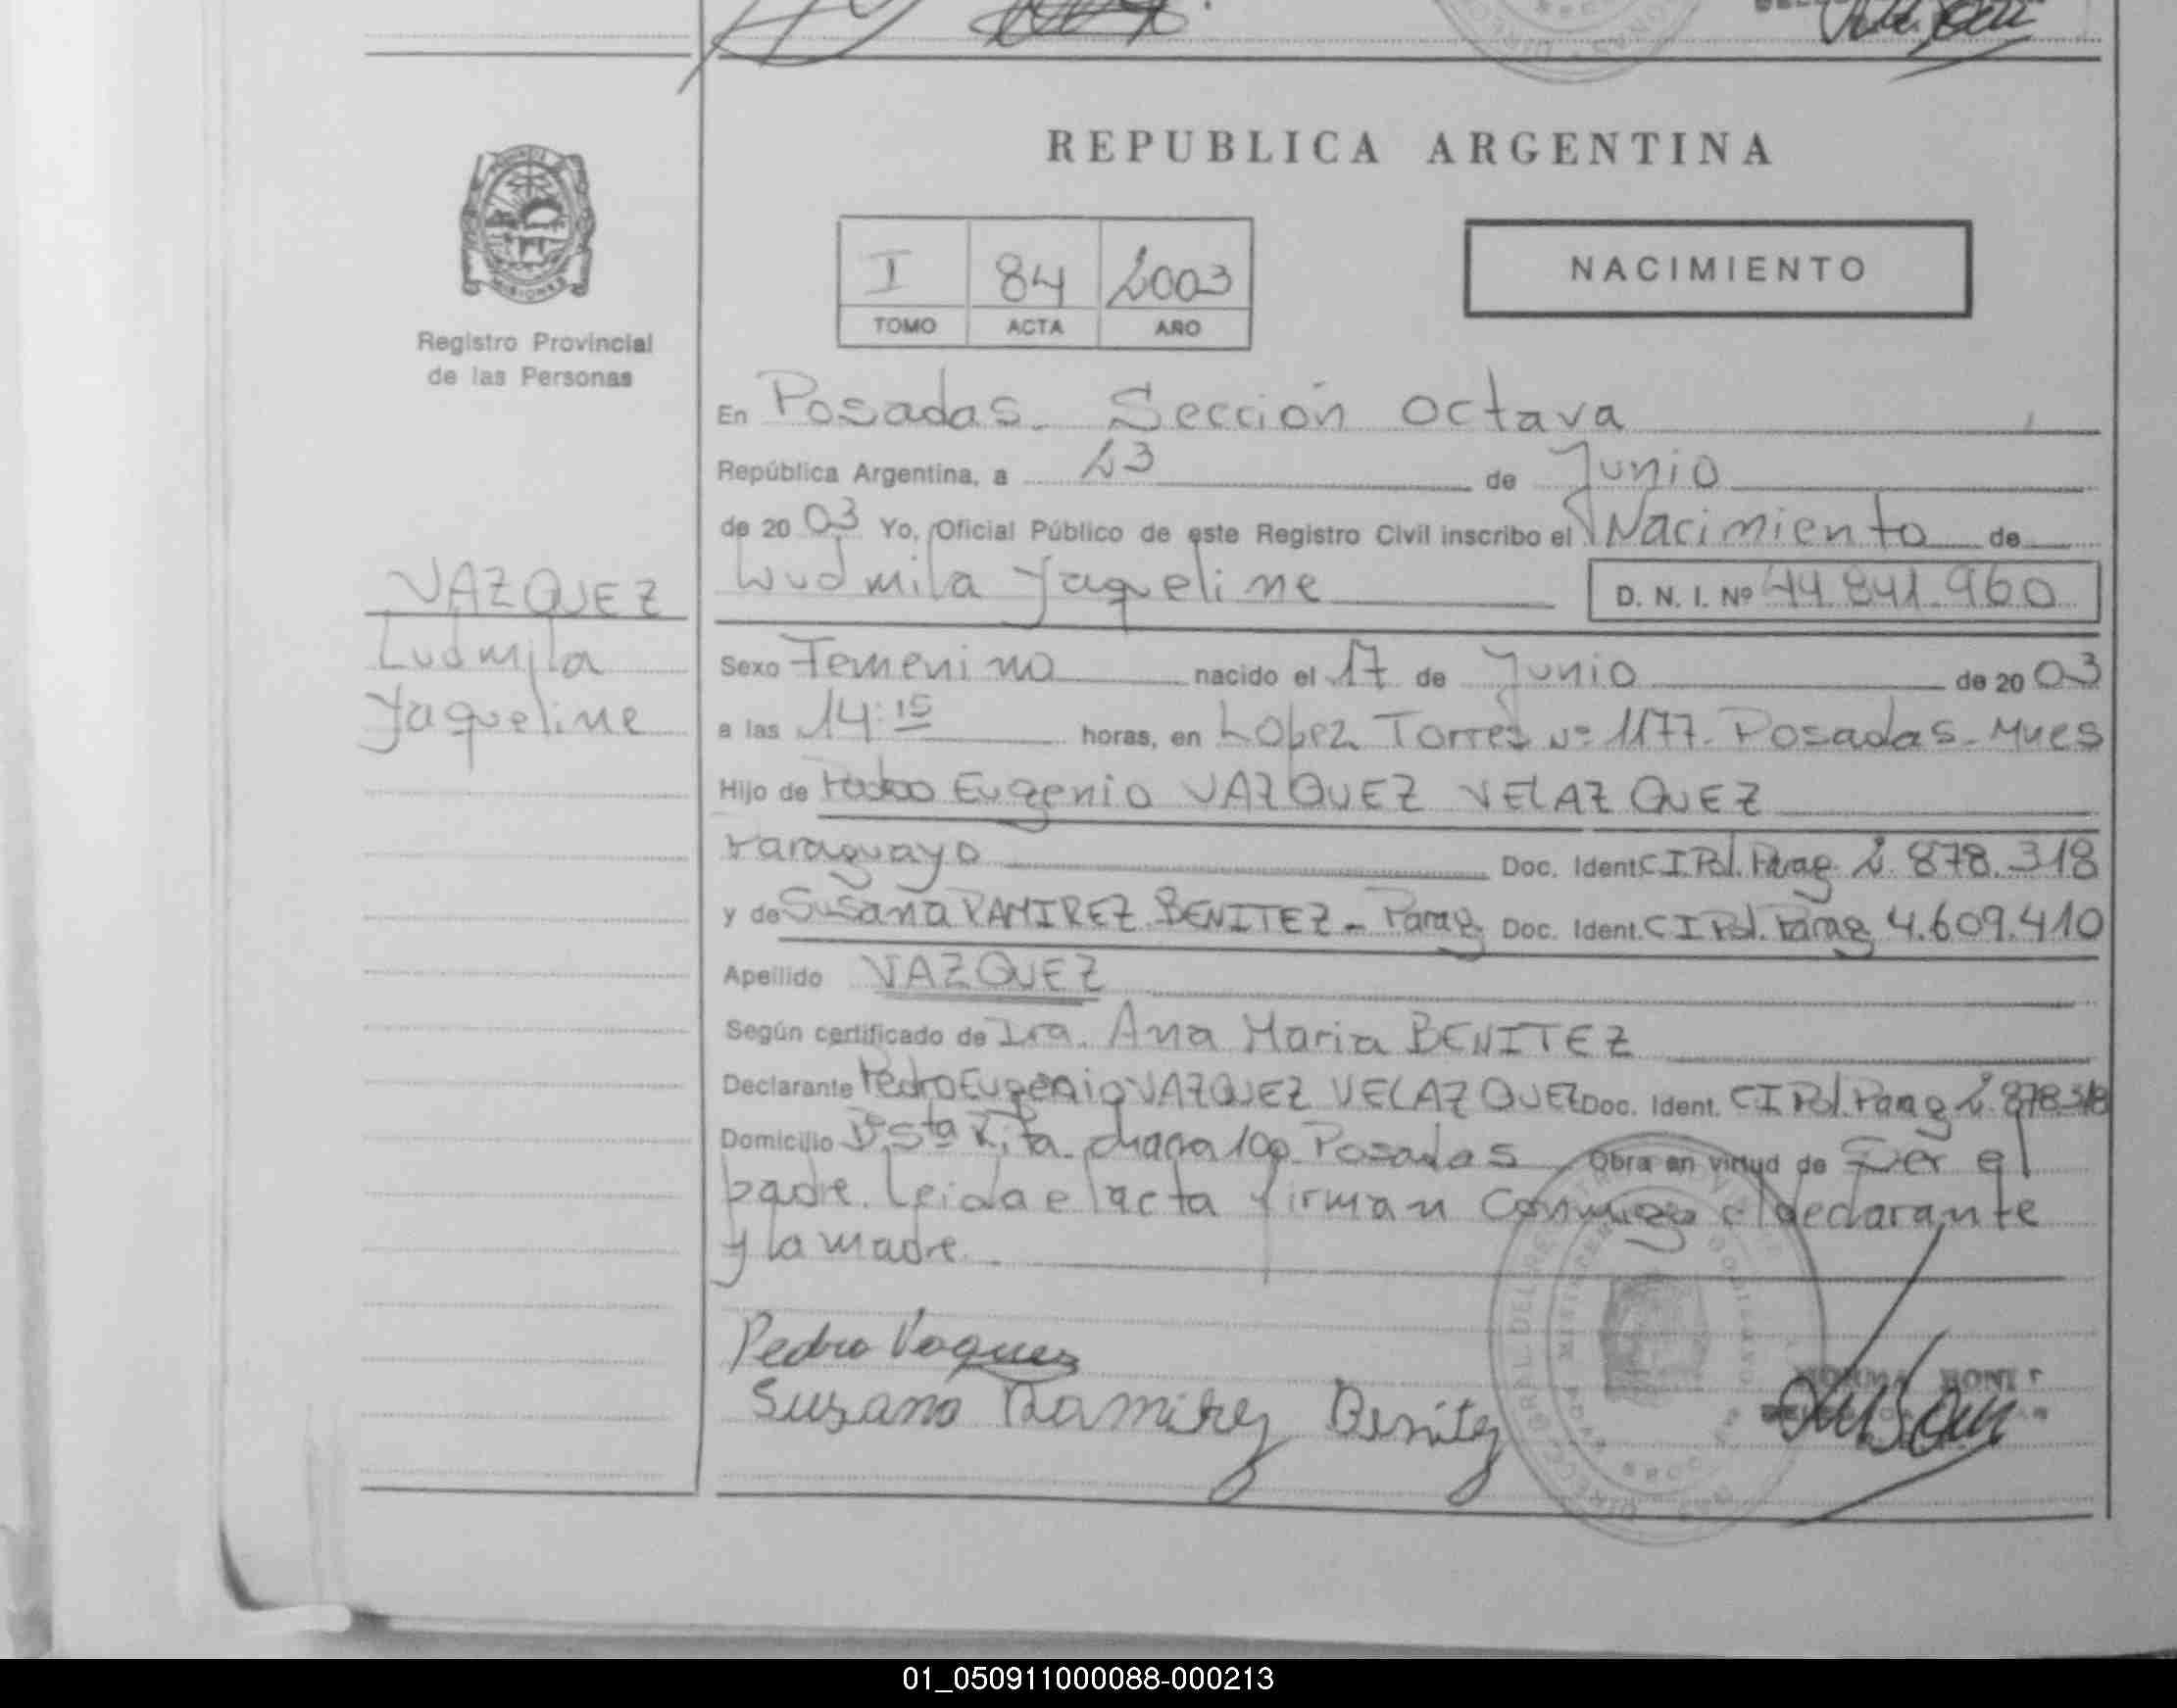 REPUBLICA ARGENTINA
MISIONES
Registro Provincial
de las Personas
I 84 2003
TOMO ACTA AÑO
NACIMIENTO
En Posadas. Sección octava
República Argentina, a 23 de Junio
de 20 03 Yo, Oficial Público de este Registro Civil inscribo el Nacimiento de
Ludmila Yaqueline D. N. I. Nº 44.841.960
VAZQUEZ
Ludmila
Yaqueline
Sexo Femenino nacido el 17 de Junio de 20 03
a las 14:15 horas, en Lopez Torres Nº 1177. Posadas - Mnes
Hijo de Pedro Eugenio VAZQUEZ VELAZQUEZ
Paraguayo Doc. Ident. C I Pol. Parag. 2.878.318
y de Susana RAMIREZ BENITEZ - Parag. Doc. Ident. C I Pol. Parag 4.609.410
Apellido VAZQUEZ
Según certificado de Dra. Ana Maria BENITEZ
Declarante Pedro Eugenio VAZQUEZ VELAZQUEZ Doc. Ident. C I Pol. Parag 2.878.318
Domicilio Bº Sta Rita. chacra 100 Posadas Obra en virtud de Ser el
padre. Leida el acta firman conmigo el declarante
y la madre.
Pedro Vaquez
Susana Ramirez Benitez
01_050911000088-000213